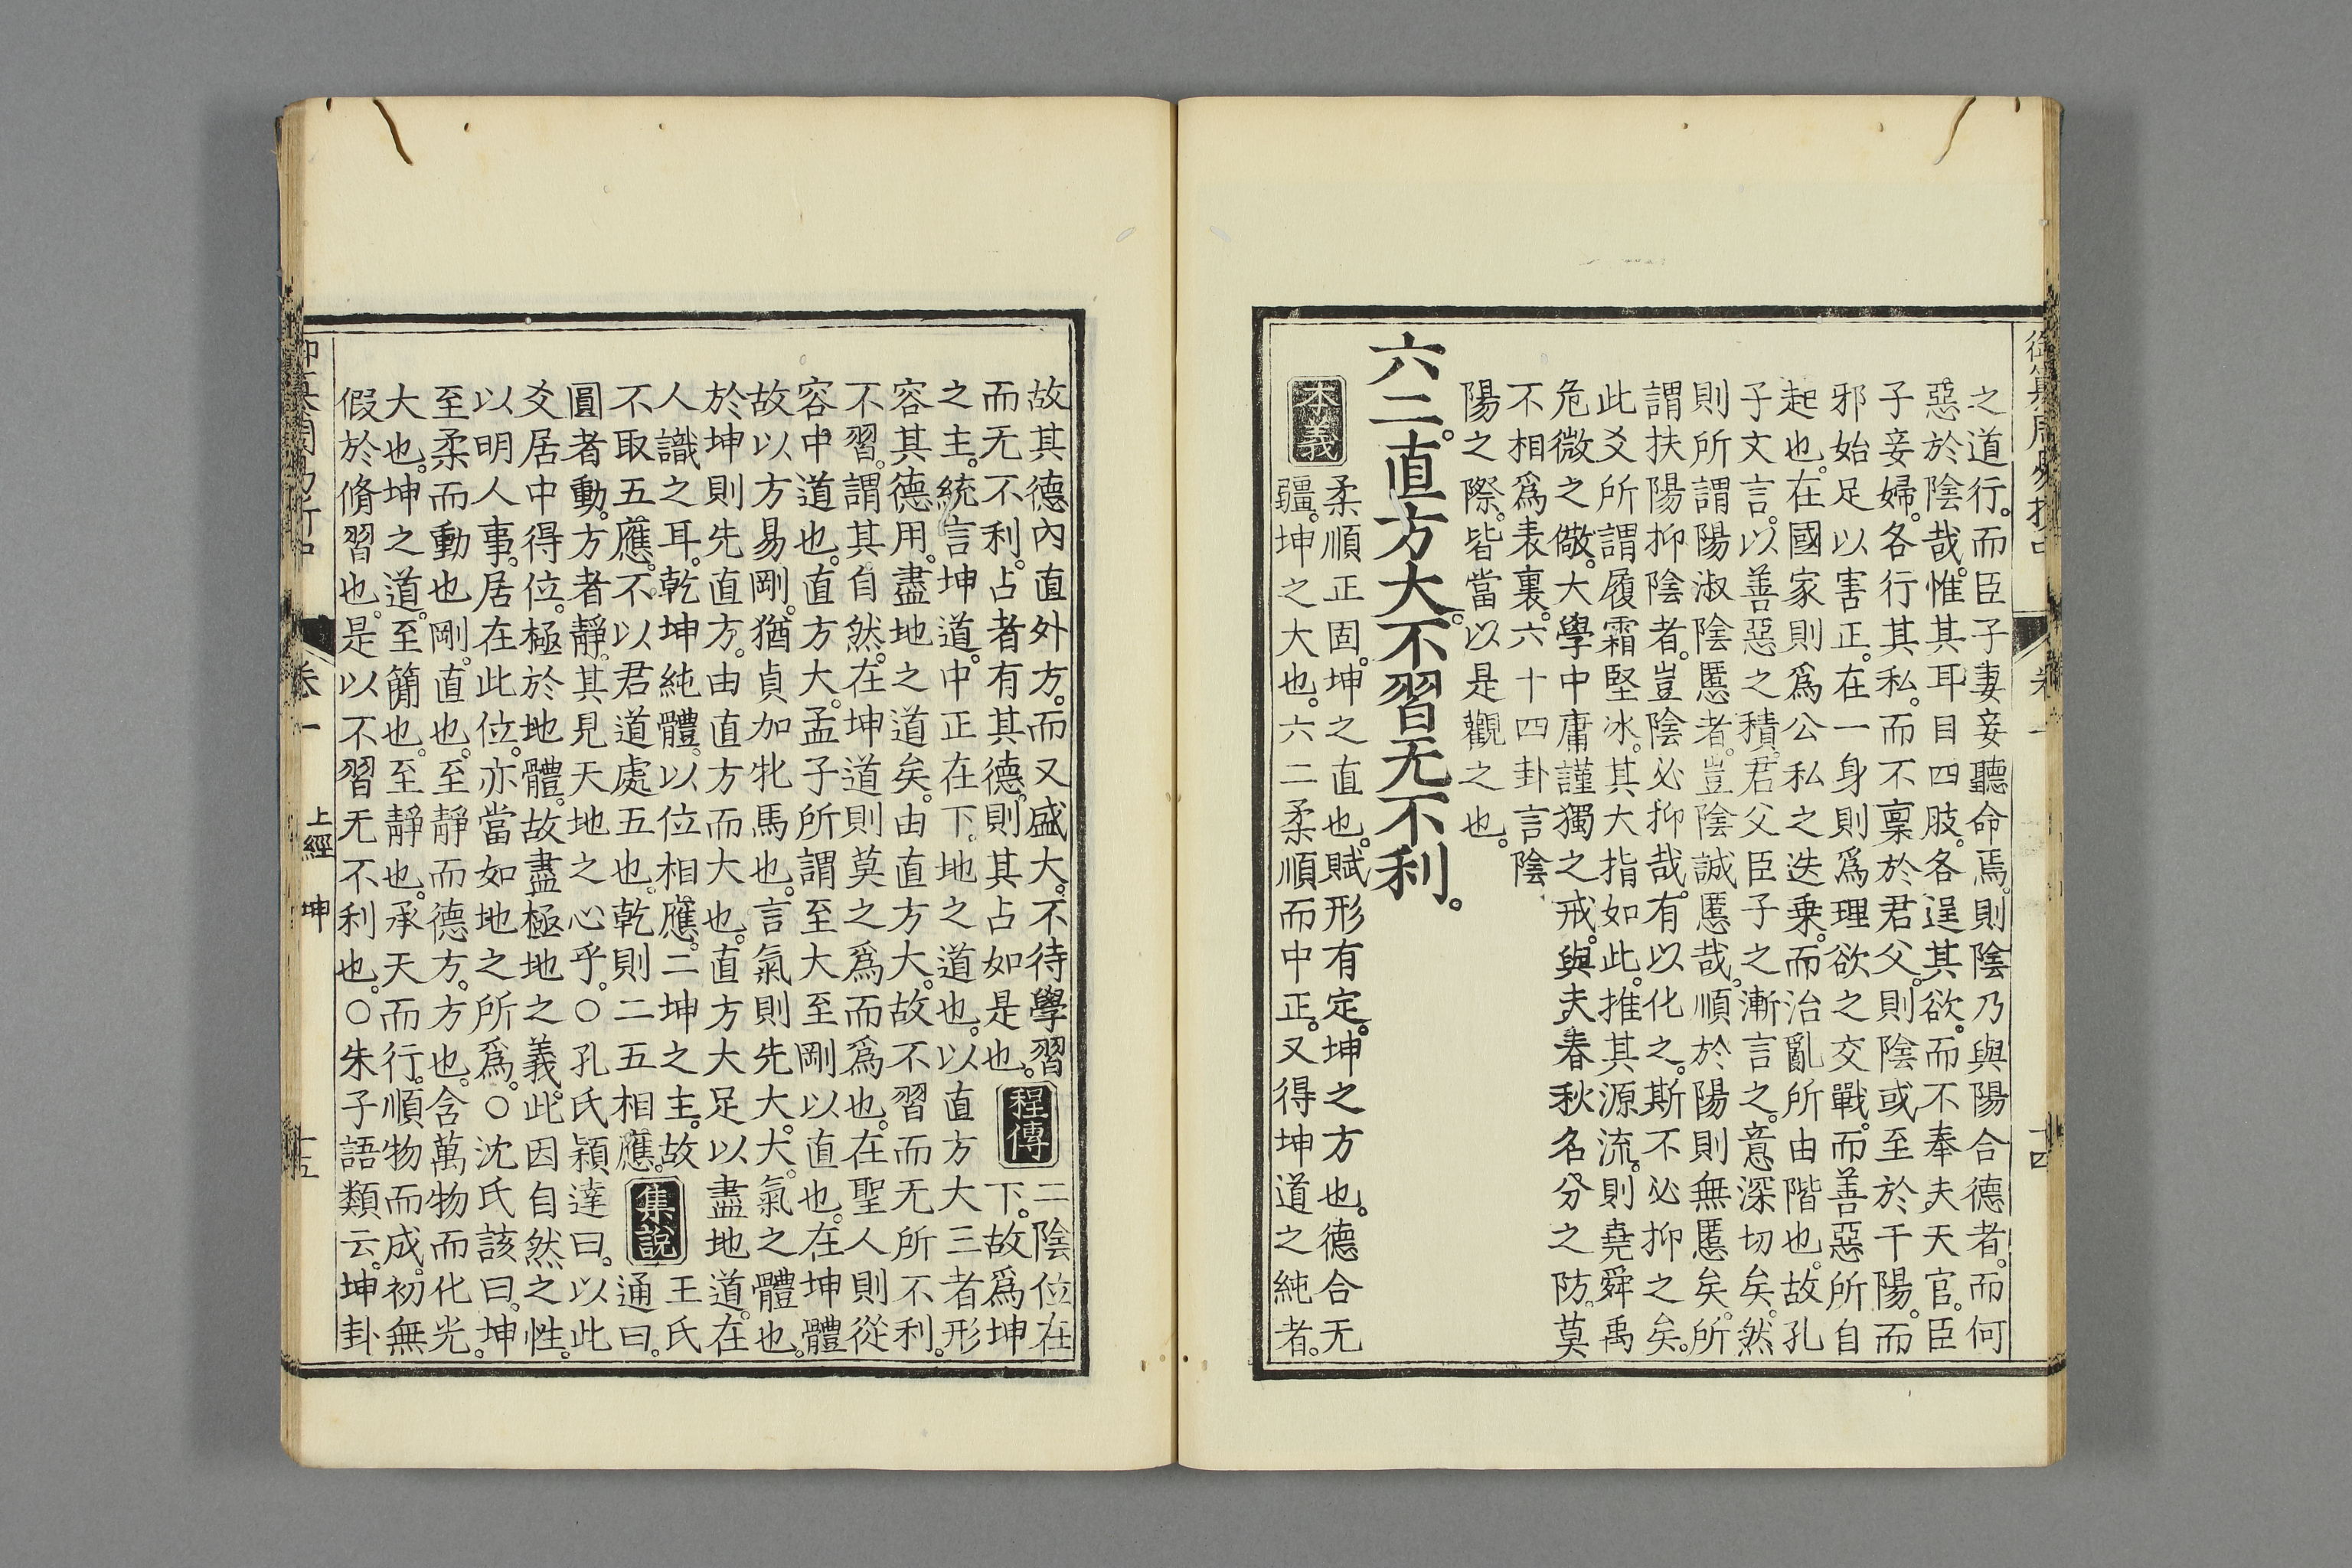 御纂周易折中 卷一 十四
之道行。而臣子妻妾聽命焉。則陰乃與陽合德者。而何
惡於陰哉。惟其耳目四肢。各逞其欲。而不奉夫天官。臣
子妾婦。各行其私。而不稟於君父。則陰或至於干陽。而
邪始足以害正。在一身則爲理欲之交戰。而善惡所自
起也。在國家則爲公私之迭乘。而治亂所由階也。故孔
子文言。以善惡之積。君父臣子之漸言之。意深切矣。然
則所謂陽淑陰慝者。豈陰誠慝哉。順於陽則無慝矣。所
謂扶陽抑陰者。豈陰必抑哉。有以化之。斯不必抑之矣。
此爻所謂履霜堅冰。其大指如此。推其源流。則堯舜禹
危微之儆。大學中庸謹獨之戒。與夫春秋名分之防。莫
不相爲表裏。六十四卦言陰
陽之際。皆當以是觀之也。
六二。直方大。不習无不利。
本義
柔順正固。坤之直也。賦形有定。坤之方也。德合无
疆。坤之大也。六二柔順而中正。又得坤道之純者。
故其德內直外方。而又盛大。不待學習
而无不利。占者有其德。則其占如是也。
程傳
二陰位在
下。故爲坤
之主。統言坤道。中正在下。地之道也。以直方大三者形
容其德用。盡地之道矣。由直方大。故不習而无所不利。
不習。謂其自然。在坤道則莫之爲而爲也。在聖人則從
容中道也。直方大。孟子所謂至大至剛以直也。在坤體
故以方易剛。猶貞加牝馬也。言氣則先大。大。氣之體也。
於坤則先直方。由直方而大也。直方大足以盡地道。在
人識之耳。乾坤純體。以位相應。二坤之主。故
不取五應。不以君道處五也。乾則二五相應。
集說
王氏
通曰。
圓者動。方者靜。其見天地之心乎。○孔氏穎達曰。以此
爻居中得位。極於地體。故盡極地之義。此因自然之性。
以明人事。居在此位。亦當如地之所爲。○沈氏該曰。坤
至柔而動也剛。直也。至靜而德方。方也。含萬物而化光。
大也。坤之道。至簡也。至靜也。承天而行。順物而成。初無
假於脩習也。是以不習无不利也。○朱子語類云。坤卦
卷一 上經 坤 十五